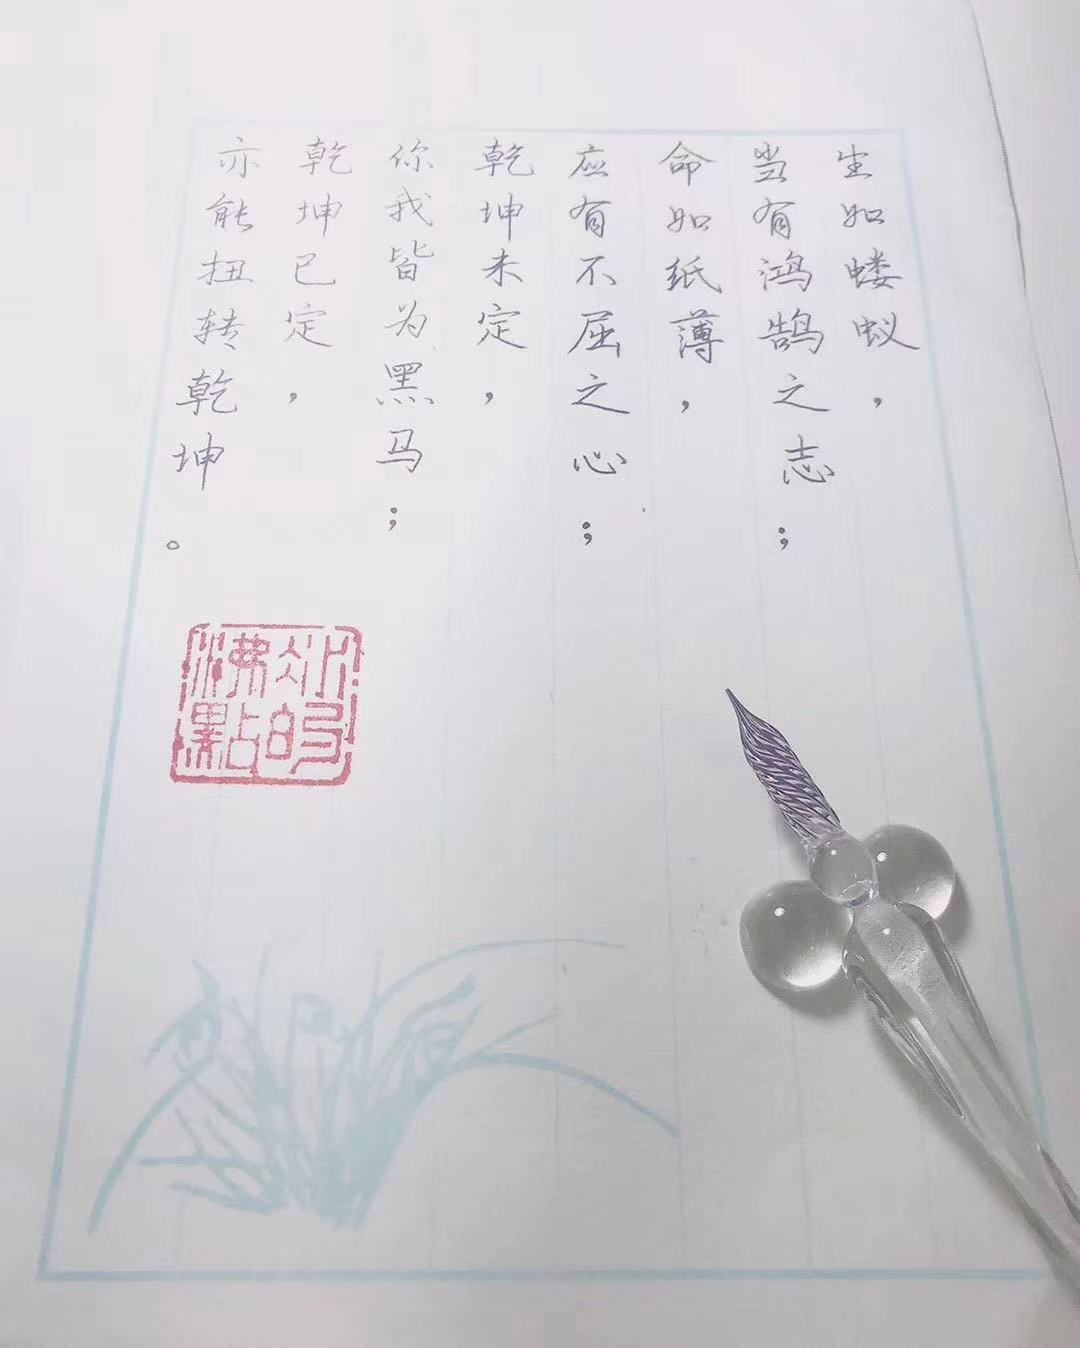 生如蝼蚁，
当有鸿鹄之志；
命如纸薄，
应有不屈之心；
乾坤未定，
你我皆为黑马；
乾坤已定，
亦能扭转乾坤。